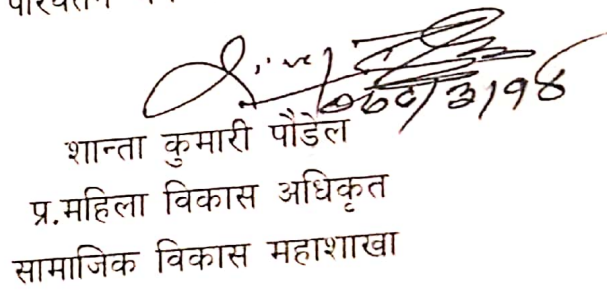 ०८०/३/१४
शान्ता कुमारी पौडेल
प्र.महिला विकास अधिकृत
सामाजिक विकास महाशाखा